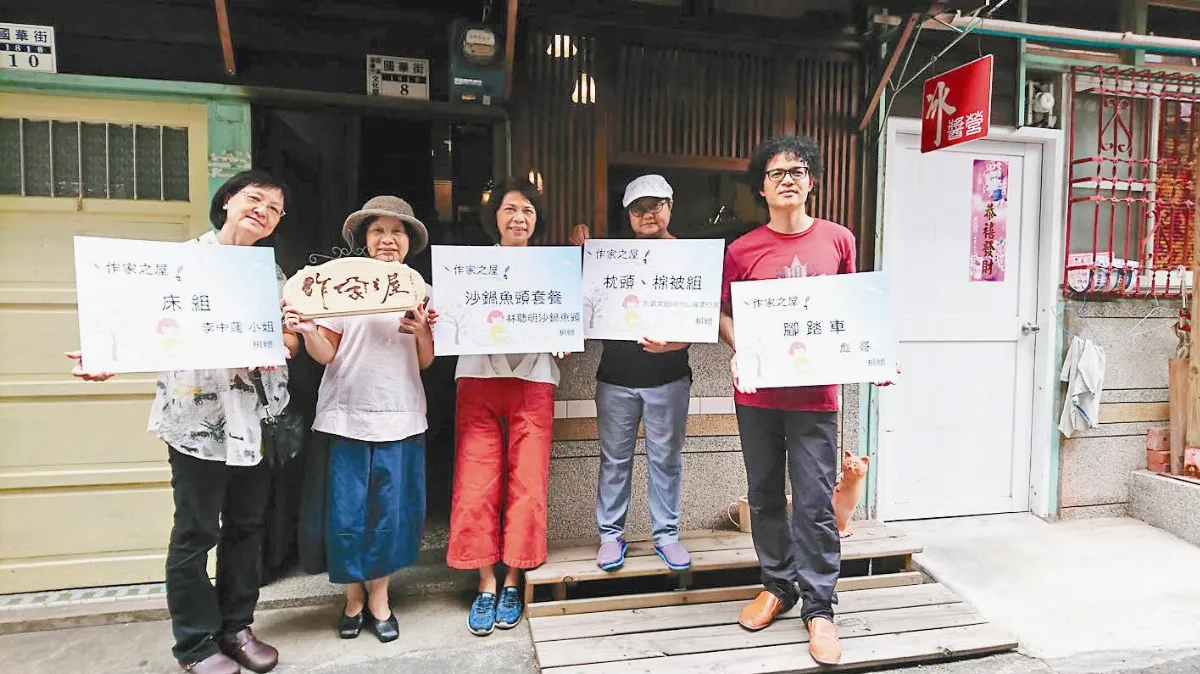 國華街
1816
10
國華街
8
冰
醬營
恭禧發財
作家之屋
床組
李中蓮 小姐
捐贈
作家之屋
作家之屋
沙鍋魚頭套餐
林聰明沙鍋魚頭
捐贈
作家之屋
枕頭、棉被組
捐贈
作家之屋
腳踏車
捐贈